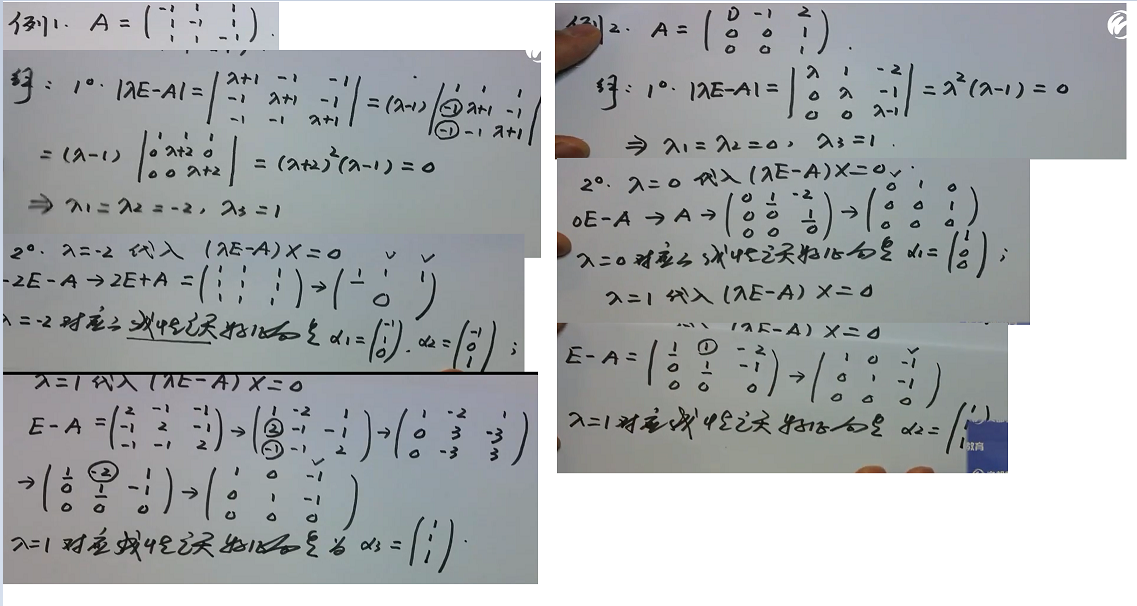 例1. A = (-1 1 1; 1 -1 1; 1 1 -1).
解: 1°. |λE-A| = |λ+1 -1 -1; -1 λ+1 -1; -1 -1 λ+1| = (λ-1) |1 1 1; -1 λ+1 -1; -1 -1 λ+1|
= (λ-1) |1 1 1; 0 λ+2 0; 0 0 λ+2| = (λ+2)²(λ-1) = 0
⇒ λ1 = λ2 = -2, λ3 = 1
2°. λ=-2 代入 (λE-A)X=0
-2E-A → 2E+A = (1 1 1; 1 1 1; 1 1 1) → (1 1 1; 0)
λ=-2 对应的线性无关特征向量 α1=(-1; 1; 0). α2=(-1; 0; 1);
λ=1 代入 (λE-A)X=0
E-A = (2 -1 -1; -1 2 -1; -1 -1 2) → (1 -2 1; 2 -1 -1; -1 -1 2) → (1 -2 1; 0 3 -3; 0 -3 3)
→ (1 -2 1; 0 1 -1; 0 0 0) → (1 0 -1; 0 1 -1; 0 0 0)
λ=1 对应线性无关特征向量为 α3 = (1; 1; 1).
例2. A = (0 -1 2; 0 0 1; 0 0 1).
解: 1°. |λE-A| = |λ 1 -2; 0 λ -1; 0 0 λ-1| = λ²(λ-1) = 0
⇒ λ1 = λ2 = 0, λ3 = 1.
2°. λ=0 代入 (λE-A)X=0.
0E-A → A → (0 1 -2; 0 0 1; 0 0 0) → (0 1 0; 0 0 1; 0 0 0)
λ=0 对应的线性无关特征向量 α1=(1; 0; 0);
λ=1 代入 (λE-A)X=0
(λE-A)X=0
E-A = (1 1 -2; 0 1 -1; 0 0 0) → (1 0 -1; 0 1 -1; 0 0 0)
λ=1 对应线性无关特征向量 α2=(1; 1; 1)
教育